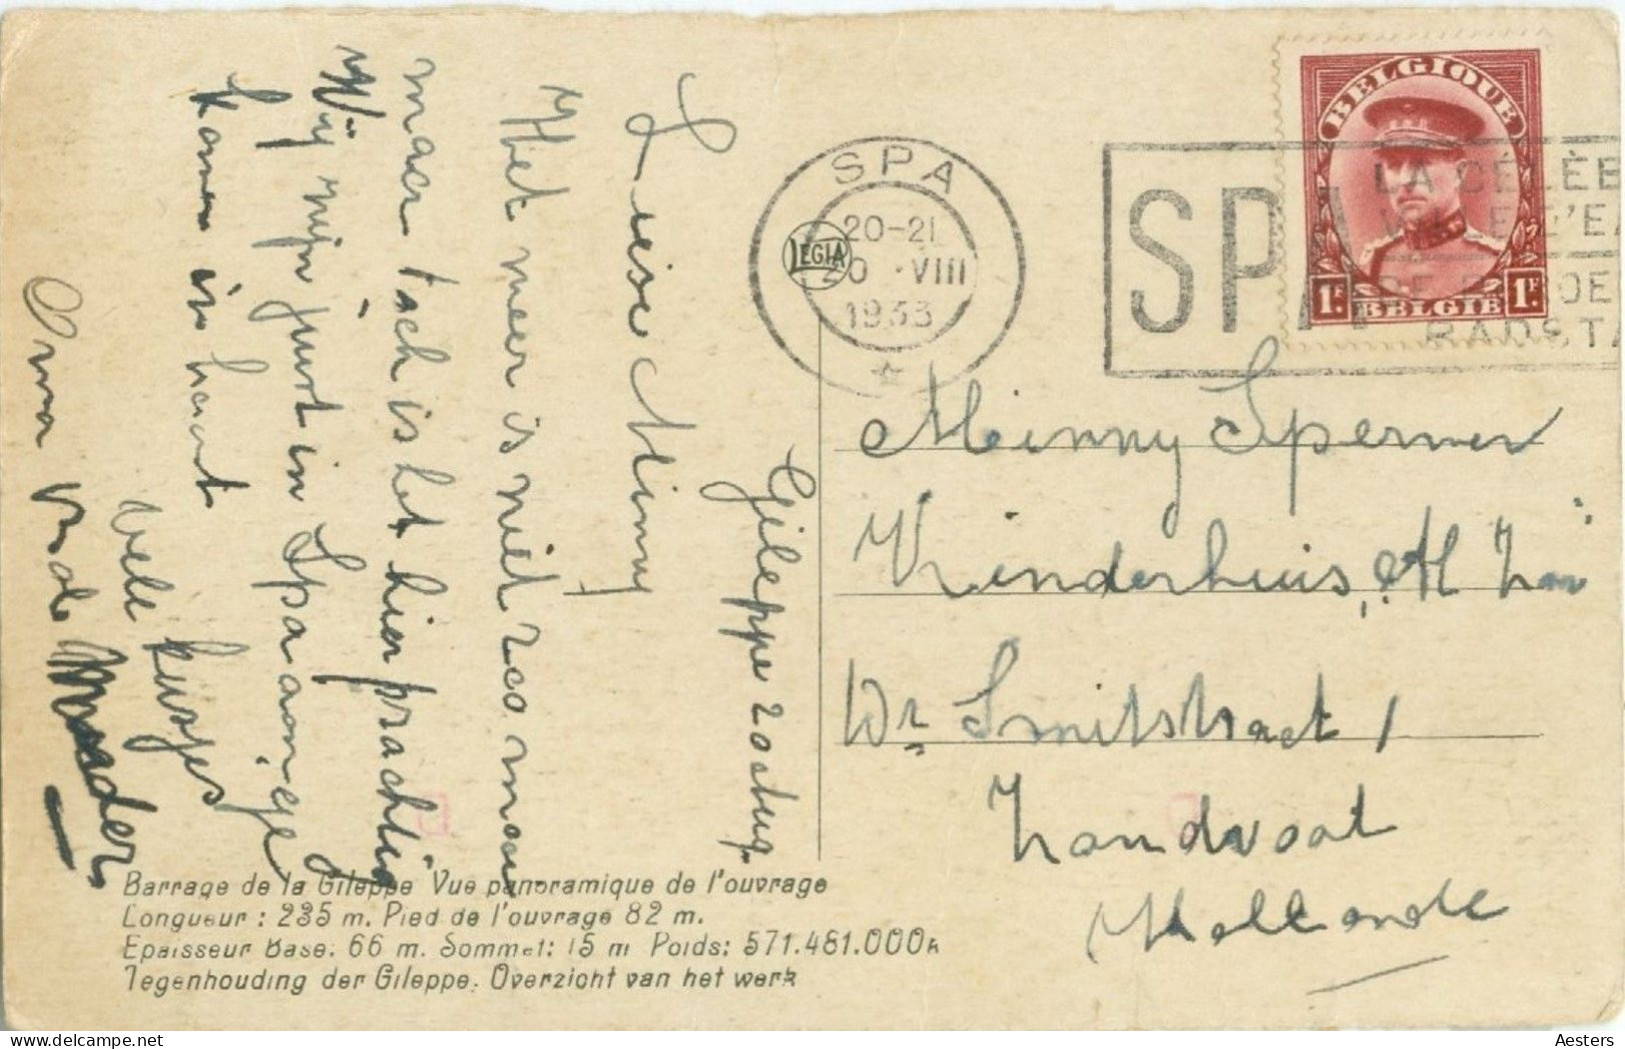 Gileppe 20 Aug.
Lieve Minny
Het weer is niet zoo mooi
maar toch is het hier prachtig
Wij zijn juist in Spa aange
komen in haast
vele kusjes
Oma Moeder
SPA
20-21
20 VIII
1933
LEGIA
SPA
LA CÉLÈB
VILLE D'EA
DE B OE
BADSTA
BELGIQUE
1F. BELGIE 1F
Minny Sperwer
Kinderhuis, M
Dr Smitstraat 1
Zandvoort
Hollande
Barrage de la Gileppe Vue panoramique de l'ouvrage
Longueur : 235 m. Pied de l'ouvrage 82 m.
Epaisseur Base: 66 m. Sommet: 15 m Poids: 571.481.000k
Tegenhouding der Gileppe. Overzicht van het werk
www.delcampe.net
Aesters